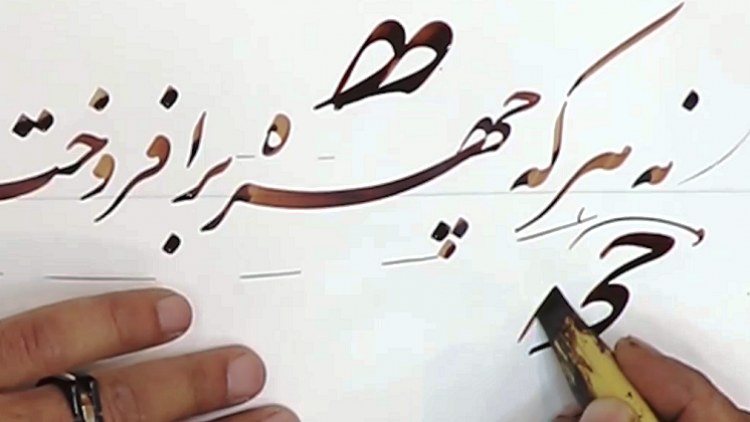 نه هر که چهره برافروخت